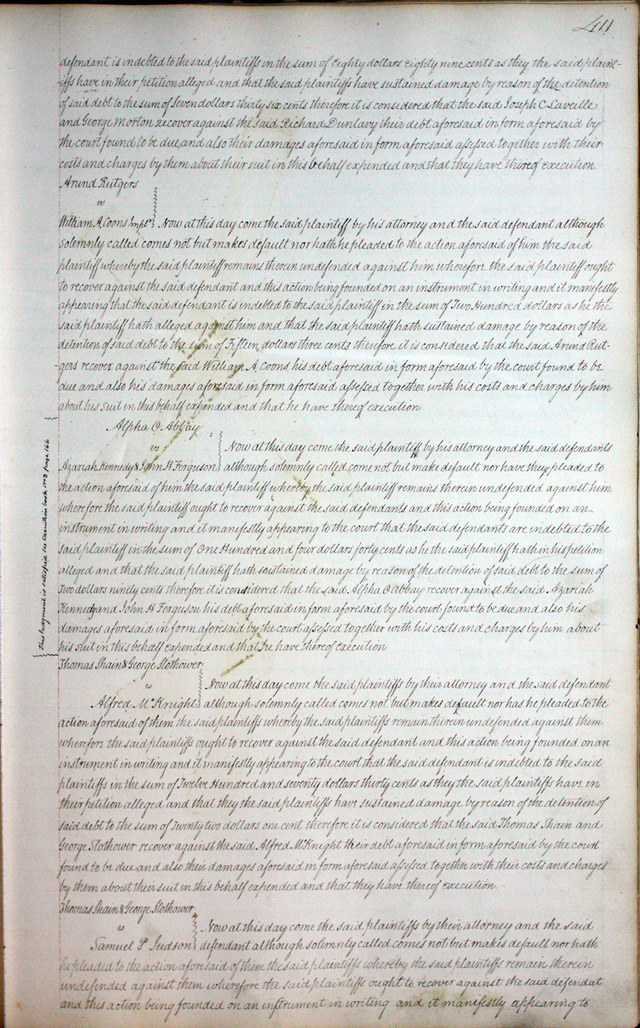 411
defendant is indebted to the said plaintiffs in the sum of eighty dollars eighty nine cents as they the said plaint-
iffs have in their petition alleged and that the said plaintiffs have sustained damage by reason of the detention
of said debt to the sum of Seven dollars thirty six cents therefore it is considered that the said Joseph C Laveille
and George Morton recover against the said Richard Dunlavy their debt aforesaid in form aforesaid by
the court found to be due, and also their damages aforesaid in form aforesaid assessed together with their
costs and charges by them about their suit in this behalf expended and that they have thereof execution
Arund Rutgers
vs
William A. Coons Impl. Now at this day come the said plaintiff by his attorney and the said defendant although
solemnly called comes not but makes default nor hath he pleaded to the action aforesaid of him the said
plaintiff whereby the said plaintiff remains therein undefended against him wherefore the said plaintiff ought
to recover against the said defendant and this action being founded on an instrument in writing and it manifestly
appearing that the said defendant is indebted to the said plaintiff in the sum of Two Hundred dollars as he the
said plaintiff hath alleged against him and that the said plaintiff hath sustained damage by reason of the
detention of said debt to the sum of Fifteen dollars three cents therefore it is considered that the said Arund Rut-
-gers recover against the said William A. Coons his debt aforesaid in form aforesaid by the court found to be
due and also his damages aforesaid in form aforesaid assessed together with his costs and charges by him
about his suit in this behalf expended and that he have thereof execution
Alpha O. Abbay
vs
Now at this day come the said plaintiff by his attorney and the said defendants
Azariah Kennedy & John H Ferguson although solemnly called come not but make default nor have they pleaded to
the action aforesaid of him the said plaintiff whereby the said plaintiff remains therein undefended against him
wherefore the said plaintiff ought to recover against the said defendants and this action being founded on an
instrument in writing and it manifestly appearing to the court that the said defendants are indebted to the
said plaintiff in the sum of One Hundred and four dollars forty cents as he the said plaintiff hath in his petition
alleged and that the said plaintiff hath sustained damage by reason of the detention of said debt to the sum of
Two dollars ninety cents therefore it is considered that the said Alpha O Abbay recover against the said Azariah
Kennedy and John H Ferguson his debt aforesaid in form aforesaid by the court found to be due and also his
damages aforesaid in form aforesaid by the court assessed together with his costs and charges by him about
his suit in this behalf expended and that he have thereof execution
This judgment is satisfied see Execution book No 3 page 166
Thomas Shain & George Slothower
vs
Now at this day come the said plaintiffs by their attorney and the said defendant
Alfred McKnight although solemnly called comes not but makes default nor has he pleaded to the
action aforesaid of them the said plaintiffs whereby the said plaintiffs remain therein undefended against them
wherefore the said plaintiffs ought to recover against the said defendant and this action being founded on an
instrument in writing and it manifestly appearing to the court that the said defendant is indebted to the said
plaintiffs in the sum of Twelve Hundred and seventy dollars thirty cents as they the said plaintiffs have in
their petition alleged and that they the said plaintiffs have sustained damage by reason of the detention of
said debt to the sum of Twenty two dollars one cent therefore it is considered that the said Thomas Shain and
George Slothower recover against the said Alfred McKnight their debt aforesaid in form aforesaid by the court
found to be due and also their damages aforesaid in form aforesaid assessed together with their costs and charges
by them about their suit in this behalf expended and that they have thereof execution
Thomas Shain & George Slothower
vs
Now at this day come the said plaintiffs by their attorney and the said
Samuel P. Judson defendant although solemnly called comes not but makes default nor hath
he pleaded to the action aforesaid of them the said plaintiffs whereby the said plaintiffs remain therein
undefended against them wherefore the said plaintiffs ought to recover against the said defendat
and this action being founded on an instrument in writing and it manifestly appearing to